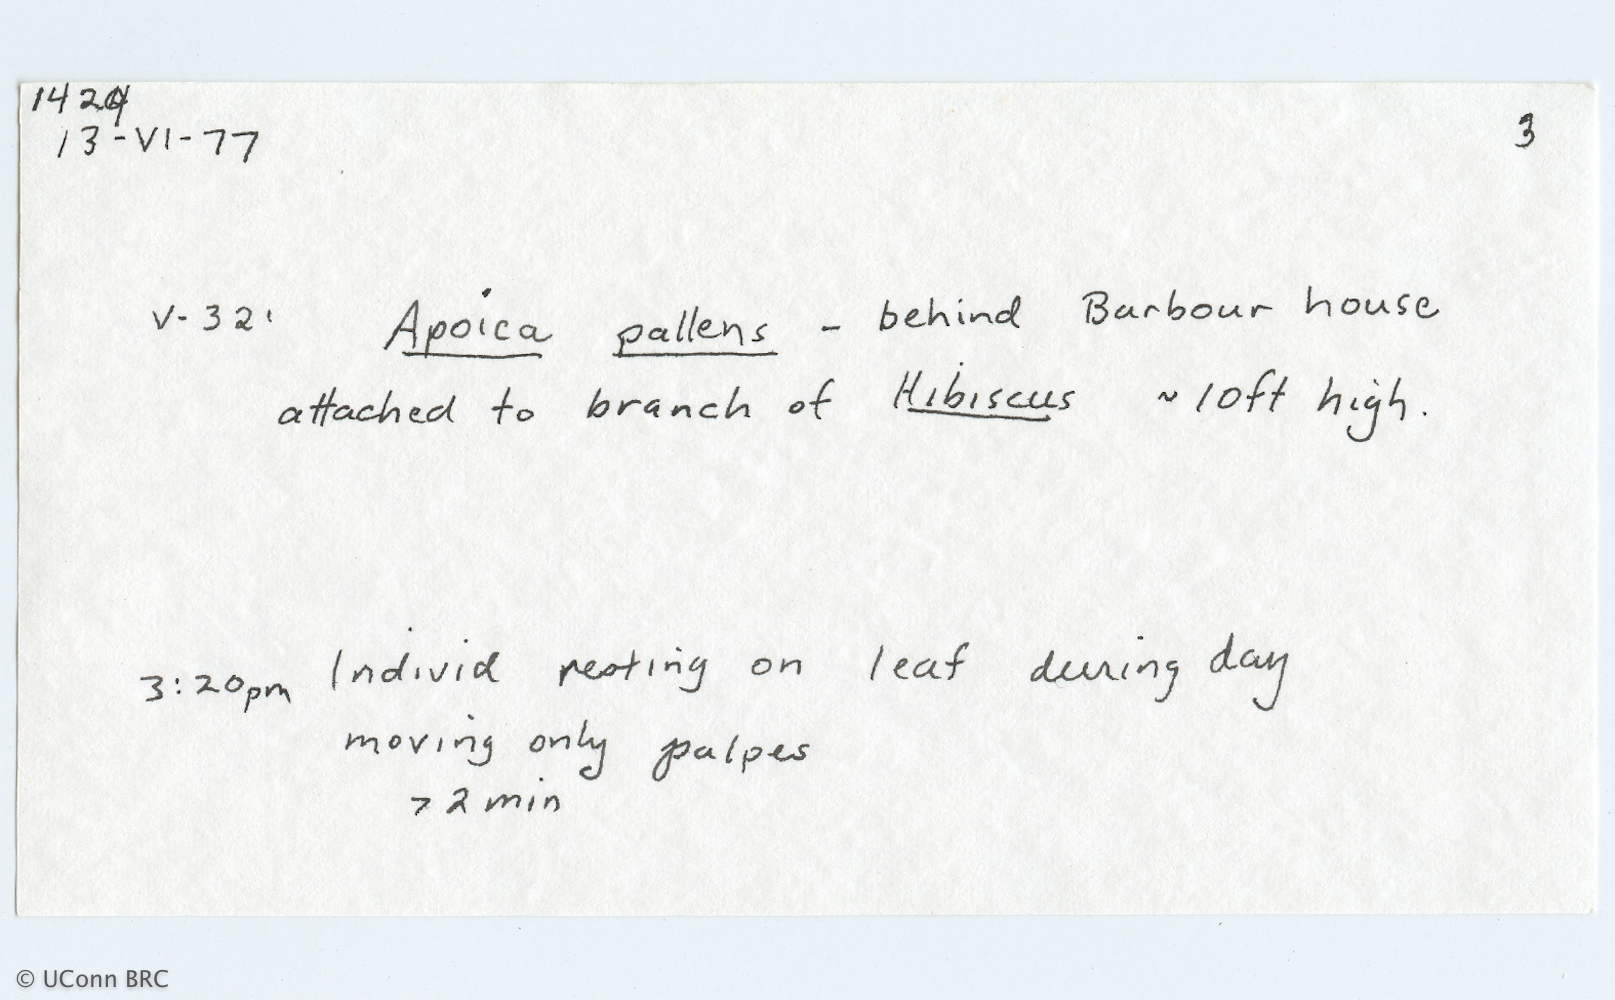 1424
13-VI-77
3
V-32: Apoica pallens - behind Barbour house
attached to branch of Hibiscus ~10ft high.
3:20pm Individ resting on leaf during day
moving only palpes
>2min
© UConn BRC